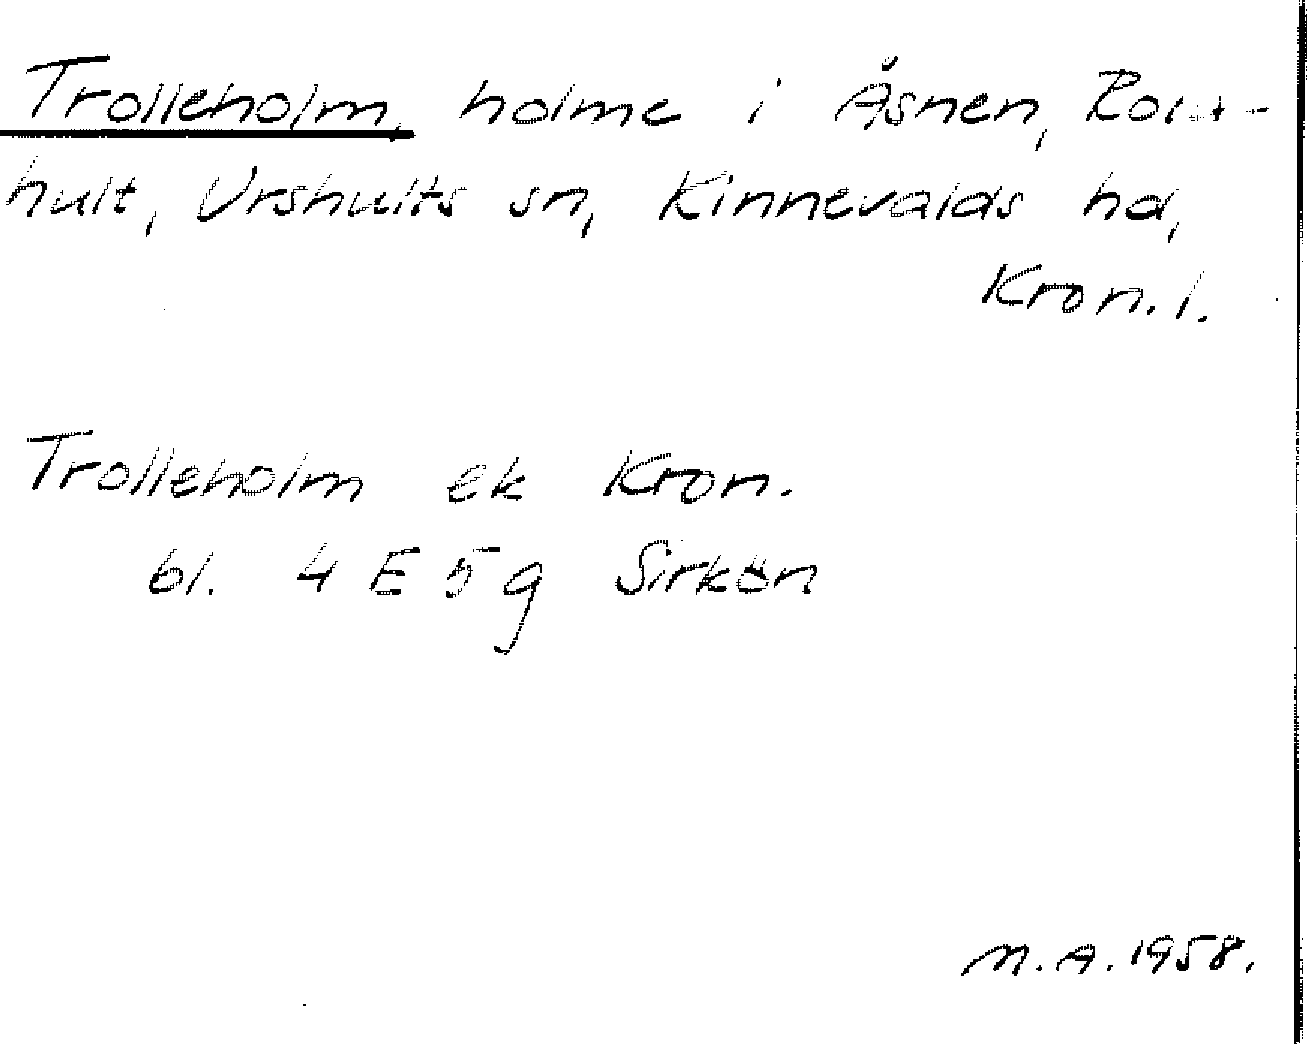 Trolleholm, holme i Åsnen,
hult, Urshults sn, Kinnevalds hd,
Kron. l.
Trolleholm ek Kron.
bl. 4 E 5 g Sirkön
M.A. 1958.